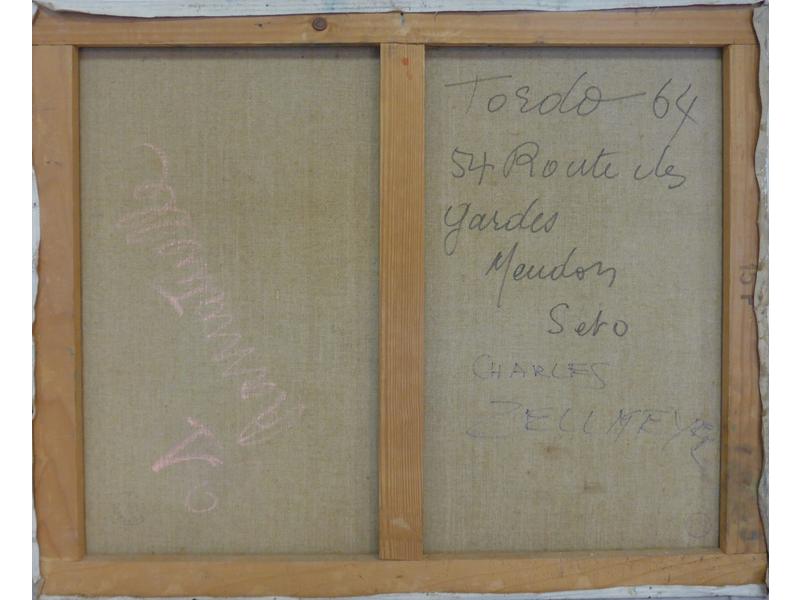 Tordo 64
54 Route des
gardes
Meudon
S et O
CHARLES
ZELLMEYER